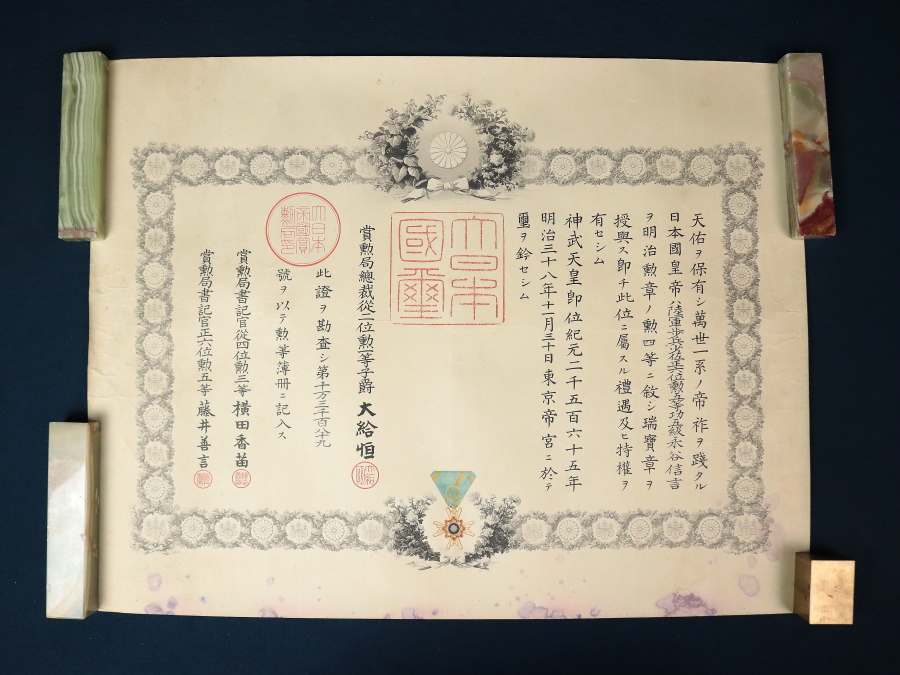 天佑ヲ保有シ萬世一系ノ帝祚ヲ踐タル
日本國皇帝ハ陸軍步兵少佐正六位勲五等功五級永谷信言
ヲ明治勲章ノ勲四等ニ敘シ瑞寶章ヲ
授與ス卽チ此位ニ屬スル禮遇及ヒ特權ヲ
有セシム
神武天皇卽位紀元二千五百六十五年
明治三十八年十一月三十日東京帝宮ニ於テ
璽ヲ鈐セシム
大日本
國璽
賞勲局總裁從二位勲一等子爵 大給恒
此證ヲ勘査シ第十万三千百八十九
號ヲ以テ勲等簿冊ニ記入ス
大日本
帝國賞
勲局印
賞勲局書記官從四位勲三等 橫田香苗
賞勲局書記官正六位勲五等 藤井善言